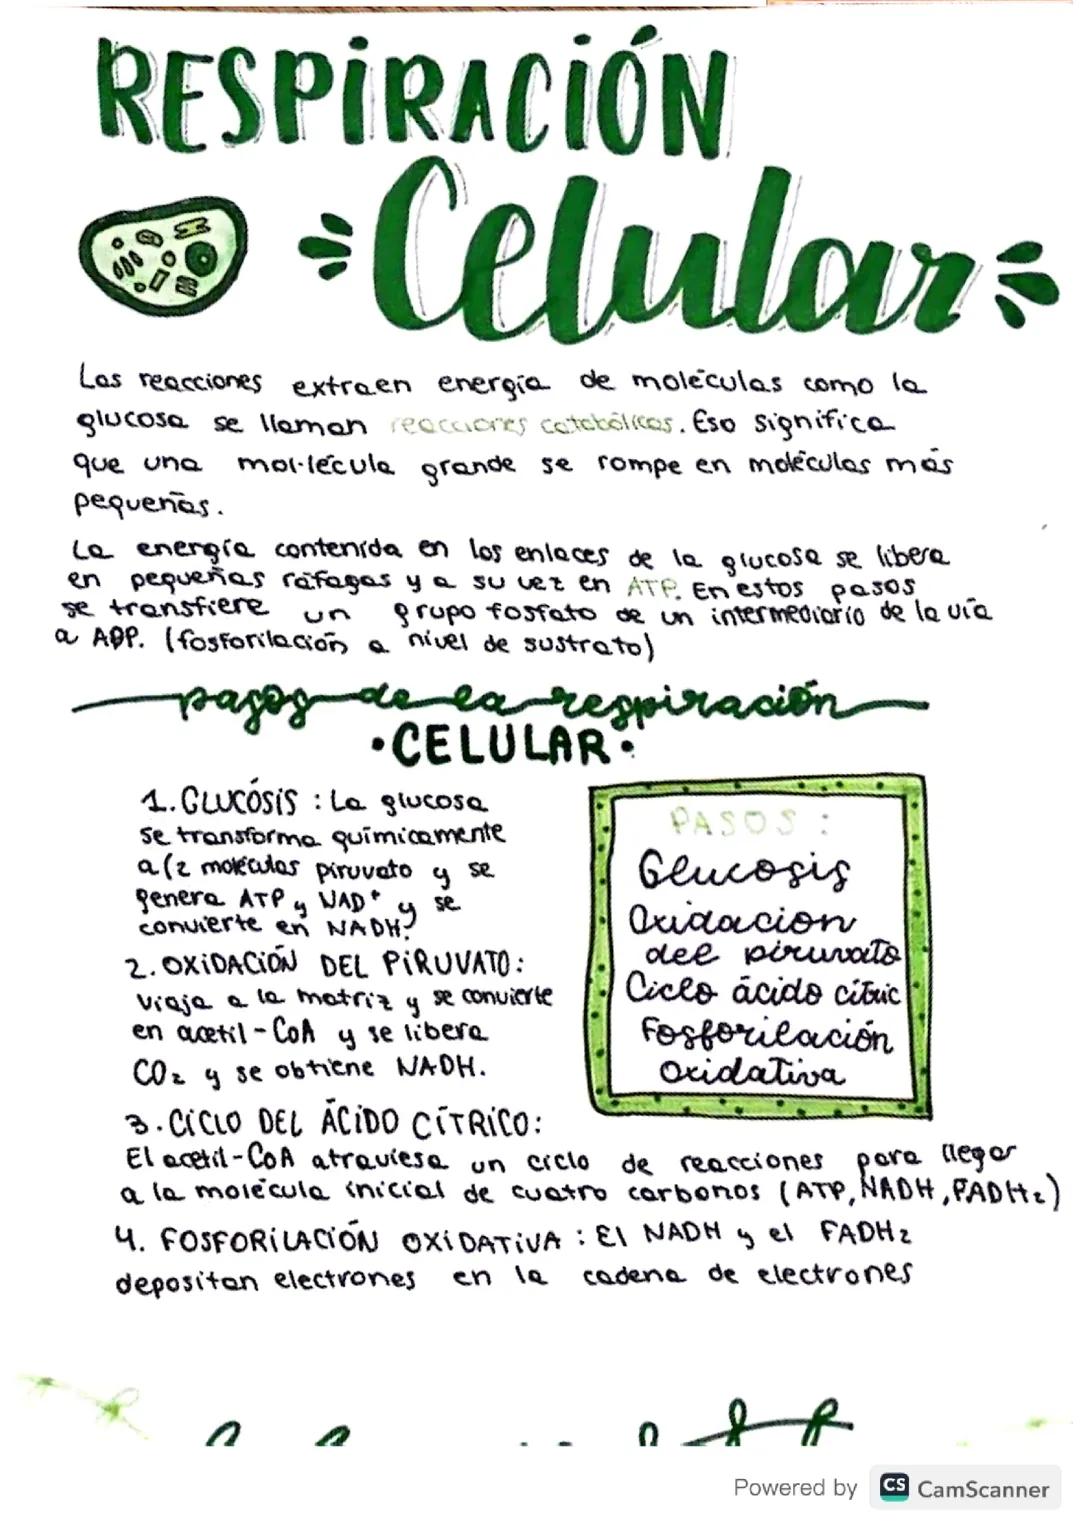 RESPIRACIÓN
Celular
Las reacciones extraen energía de moléculas como la
glucosa se llaman reacciones catabólicas. Eso significa
que una mol·lécula grande se rompe en moléculas más
pequeñas.
La energía contenida en los enlaces de la glucosa se libera
en pequeñas ráfagas y a su vez en ATP. En estos pasos
se transfiere un grupo fosfato de un intermediario de la vía
a ADP. (fosforilación a nivel de sustrato)
pasos de la respiración
·CELULAR·
1. GLUCÓSIS : La glucosa
se transforma químicamente
a (2 moléculas piruvato y se
genera ATP y NAD⁺ y se
convierte en NADH?
2. OXIDACIÓN DEL PIRUVATO:
viaja a la matriz y se convierte
en acetil-CoA y se libera
CO₂ y se obtiene NADH.
PASOS :
Glucosis
Oxidacion
del piruvato
Ciclo ácido cítric
Fosforilación
Oxidativa
3. CICLO DEL ÁCIDO CÍTRICO:
El acetil-CoA atraviesa un ciclo de reacciones para llegar
a la molécula inicial de cuatro carbonos (ATP, NADH, FADH₂)
4. FOSFORILACIÓN OXIDATIVA : El NADH y el FADH₂
depositan electrones en la cadena de electrones
Powered by CS CamScanner